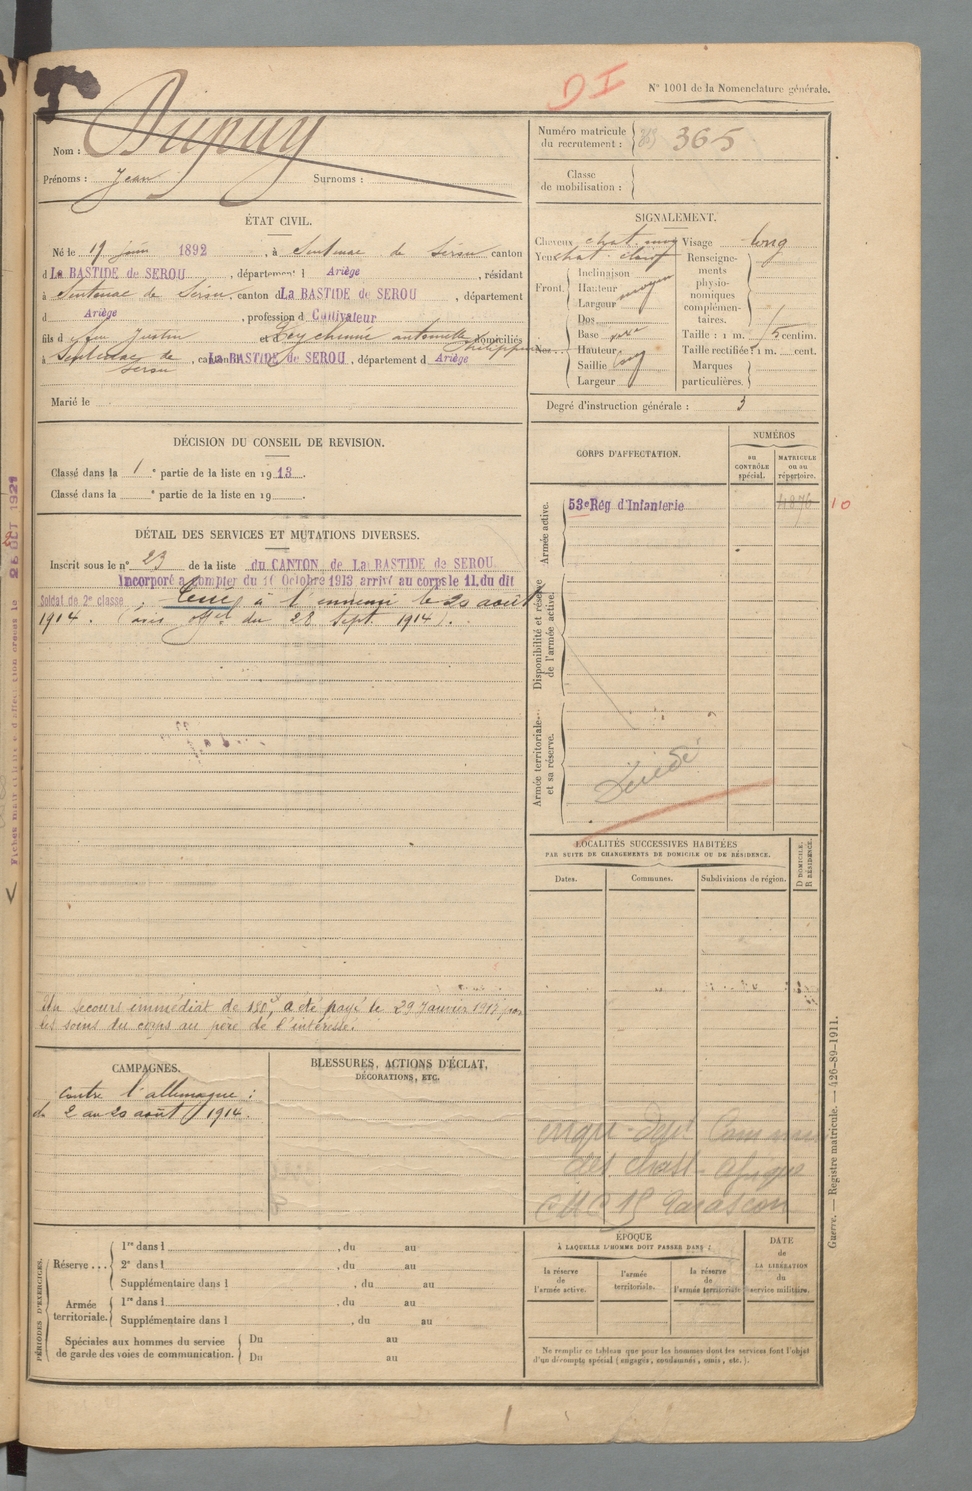 DI
N° 1001 de la Nomenclature générale.
Nom : Dupuy
Prénoms : Jean Surnoms :
Numéro matricule du recrutement : 365
Classe de mobilisation :
ÉTAT CIVIL.
Né le 19 juin 1892, à Sentenac de Sérou canton
d La BASTIDE de SEROU, département d Ariège, résidant
à Sentenac de Serou canton d La BASTIDE de SEROU, département
d Ariège, profession de Cultivateur
fils d feu Justin et d antoinette philippine domiciliés
à Sentenac de Serou, canton La BASTIDE de SEROU, département d Ariège
Marié le
SIGNALEMENT.
Cheveux chat. moy Visage long
Yeux chat. clair Renseignements physionomiques complémentaires.
Front. Inclinaison
Hauteur moyen
Largeur
Nez... Dos
Base
Hauteur
Saillie long
Largeur
Taille : 1 m. centim.
Taille rectifiée : 1 m. cent.
Marques particulières.
Degré d'instruction générale : 3
DÉCISION DU CONSEIL DE REVISION.
Classé dans la 1e partie de la liste en 1913.
Classé dans la e partie de la liste en 19
CORPS D'AFFECTATION.
NUMÉROS
au CONTRÔLE spécial.
MATRICULE ou au répertoire.
Armée active.
53e Rég d'Infanterie 4876 10
Disponibilité et réserve de l'armée active.
Armée territoriale et sa réserve.
Décédé
DÉTAIL DES SERVICES ET MUTATIONS DIVERSES.
Inscrit sous le n° 23 de la liste du CANTON de La BASTIDE de SEROU
Incorporé à compter du 10 Octobre 1913 arrivé au corps le 11. du dit
Soldat de 2e classe, tué à l'ennemi le 20 août
1914. (avis offel du 28 Sept. 1914).
Un secours immédiat de 150f, a été payé le 29 Janvier 1917 par
les soins du corps au père de l'intéressé.
LOCALITÉS SUCCESSIVES HABITÉES
PAR SUITE DE CHANGEMENTS DE DOMICILE OU DE RÉSIDENCE.
Dates. Communes. Subdivisions de région.
D DOMICILE. R RÉSIDENCE.
CAMPAGNES.
Contre l'allemagne :
du 2 au 20 août 1914.
BLESSURES, ACTIONS D'ÉCLAT,
DÉCORATIONS, ETC.
des chass afrique
Tarascon
PÉRIODES D'EXERCICES.
Réserve... 1re dans l , du au
2e dans l , du au
Supplémentaire dans l , du au
Armée territoriale. 1re dans l , du au
Supplémentaire dans l , du au
Spéciales aux hommes du service de garde des voies de communication. Du au
Du au
ÉPOQUE
À LAQUELLE L'HOMME DOIT PASSER DANS :
la réserve de l'armée active.
l'armée territoriale.
la réserve de l'armée territoriale
DATE de LA LIBÉRATION du service militaire.
Ne remplir ce tableau que pour les hommes dont les services font l'objet
d'un décompte spécial (engagés, condamnés, omis, etc.).
Guerre. — Registre matricule. — 426-89-1911.